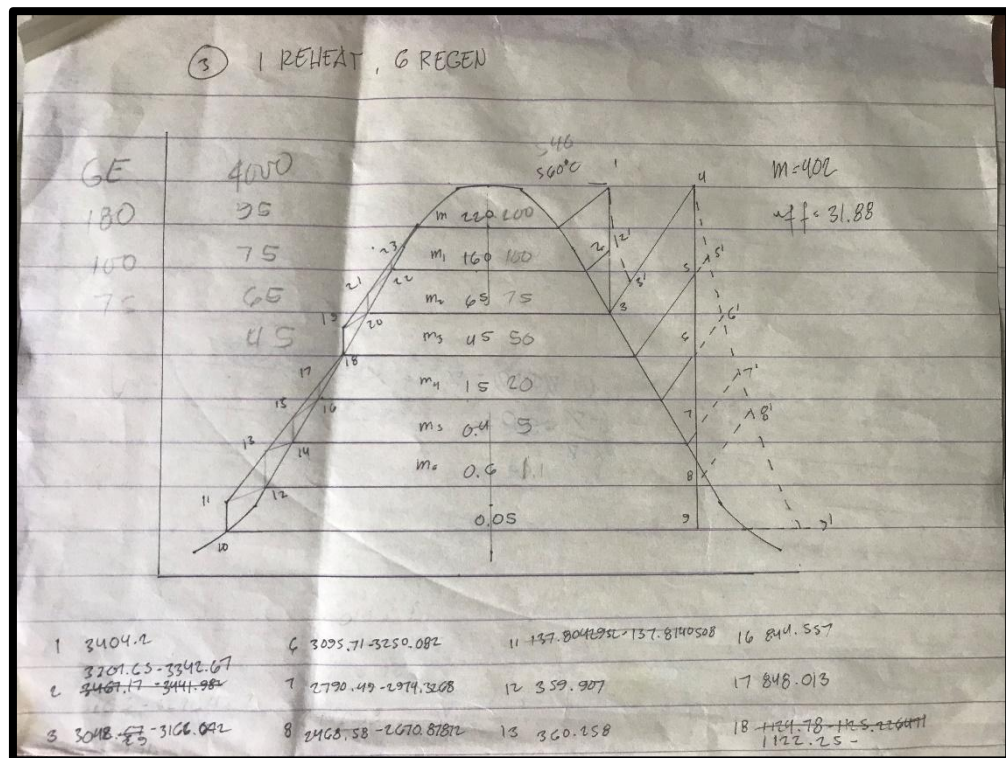 ③ 1 REHEAT, 6 REGEN
546
560°C
m=402
eff= 31.88
GE 4000
180 95
100 75
75 65
45
m 220 200
m₁ 160 100
m₂ 65 75
m₃ 45 50
m₄ 15 20
m₅ 0.4 5
m₆ 0.6 1.1
0.05
1
2 2'
3 3'
4
5 5'
6 6'
7 7'
8 8'
9 9'
10
11
12
13
14
15
16
17
18
19
20
21
22
23
1 3404.2
3201.65-3342.67
2 3467.17-3441.982
3 3048.23-3166.042
6 3095.71-3250.082
7 2790.49-2974.3268
8 2468.58-2670.87812
11 137.8042952-137.8140508
12 359.907
13 360.258
16 844.557
17 848.013
18 1124.78-1125.226471
1122.25-